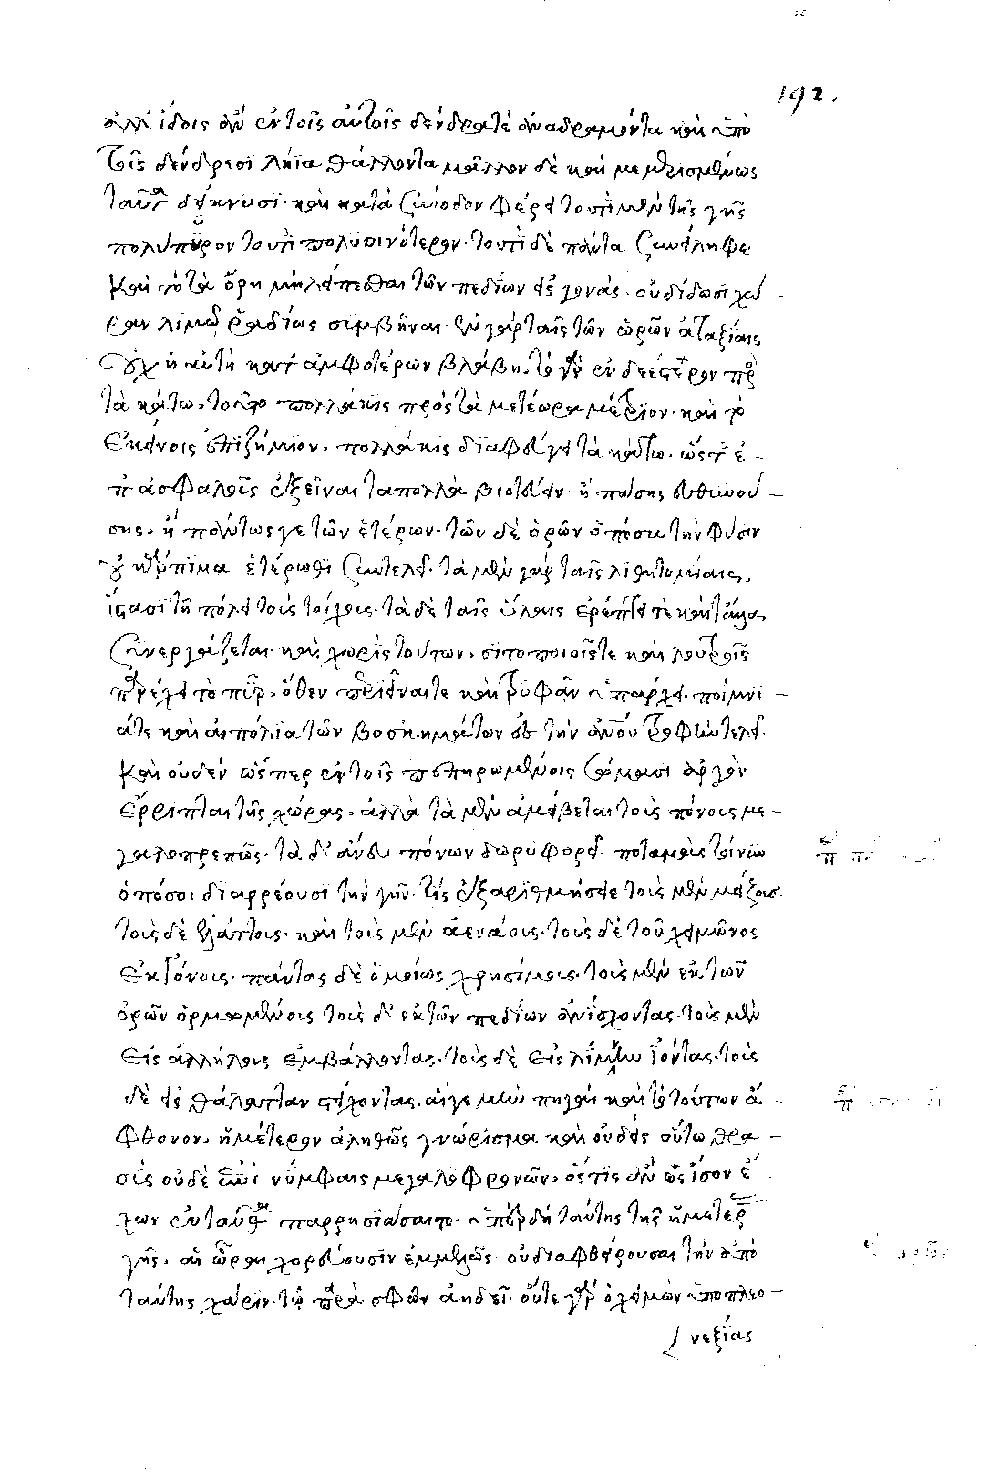 192.
ἀλλ' ἴδοις ἂν ἐν τοῖς αὐτοῖς δένδρα τε ἀναδραμόντα καὶ ὑπὸ
τοῖς δένδρεσι λήϊα θάλλοντα μᾶλλον δὲ καὶ μεμερισμένως
ταῦτα δείκνυσι· καὶ κατὰ σύνοδον φέρει τουτὶ μὲν τῆς γῆς
πολύπυρον τουτὶ πολυοινότερον· τουτὶ δὲ πάντα συνείληφε
καὶ τὸ τὰ ὄρη μὴ λείπεσθαι τῶν πεδίων εἰς γονὰς· οὐ δίδωσι χώ
ραν λιμῷ ῥαδίως συμβῆναι· ἐν γὰρ ταῖς τῶν ὡρῶν ἀταξίαις
οὐχ ἡ αὐτὴ κατ' ἀμφοτέρων βλάβη· τὸ γὰρ ἐνδεέστερον πρὸς
τὰ κάτω, τοῦτο πολλάκις πρὸς τὰ μετέωρα μέτριον· καὶ τὸ
ἐκείνοις ἐπιζήμιον, πολλάκις διαφεύγει τὰ κάτω, ὥστ' ἐ
π' ἀσφαλοῦς ἐξεῖναι τὰ πολλὰ βιοτεύειν· ἢ πάσης εὐθυνού
σης, ἢ πάντως γε τῶν ἑτέρων· τῶν δὲ ὀρῶν ὁπόσα τὴν φύσιν
οὐ κάρπιμα ἑτέρωθι συντελεῖ· τὰ μὲν γὰρ ταῖς λιθοτομίαις,
ἵστασι τῇ πόλει τοὺς τοίχους· τὰ δὲ ταῖς ὕλαις ἐρέπτει τε καὶ τἄλλα
συνεργάζεται· καὶ χωρὶς τούτων, σιτοποιοῖς τε καὶ λουτροῖς
παρέχει τὸ πῦρ, ὅθεν περιεῖναί τε καὶ τρυφᾶν ὑπάρχει· ποίμνι
ά τε καὶ αἰπόλια τῶν βοσκημάτων εἰς τὴν ἀνθρώπου τροφὴν τελεῖ·
καὶ οὐδὲν ὥσπερ ἐν τοῖς πεπηρωμένοις σώμασι ἀργὸν
ἔρριπται τῆς χώρας, ἀλλὰ τὰ μὲν ἀμείβεται τοὺς πόνους με
γαλοπρεπῶς· τὰ δ' ἄνευ πόνων δωρυφορεῖ· ποταμοὺς τοίνυν
ὁπόσοι διαρρέουσι τὴν γῆν· τίς ἐξαριθμήσειε τοὺς μὲν μείζους
τοὺς δὲ ἐλάττους· καὶ τοὺς μὲν ἀενάους, τοὺς δὲ τοῦ χειμῶνος
ἐκγόνους· πάντας δὲ ὁμοίως χρησίμους· τοὺς μὲν ἐκ τῶν
ὀρῶν ὁρμωμένους τοὺς δ' ἐκ τῶν πεδίων ἀνίσχοντας· τοὺς μὲν
εἰς ἀλλήλους ἐμβάλλοντας, τοὺς δὲ εἰς λίμνην ἰόντας· τοὺς
δὲ εἰς θάλατταν τρέχοντας, αἵ γε μὴν πηγαὶ καὶ τὸ τούτων ἄ
φθονον, ἡμέτερον ἀληθῶς γνώρισμα καὶ οὐδεὶς οὕτω θρα
σὺς οὐδὲ ἐπὶ νύμφαις μεγαλοφρονῶν, ὅστις ἂν ὡς ἴσον ἔ
χων ἐνταῦθα παρρησιάσαιτο· ὑπὲρ δὴ ταύτης τῆς ἡμετέρας
γῆς, αἱ ὧραι χορεύουσιν ἐμμελῶς· οὐ διαφθείρουσαι τὴν ἀπὸ
ταύτης χάριν τῷ παρὰ σφῶν ἀηδεῖ· οὔτε γὰρ ὁ χειμὼν ὑπὸ πλεο
νεξίας